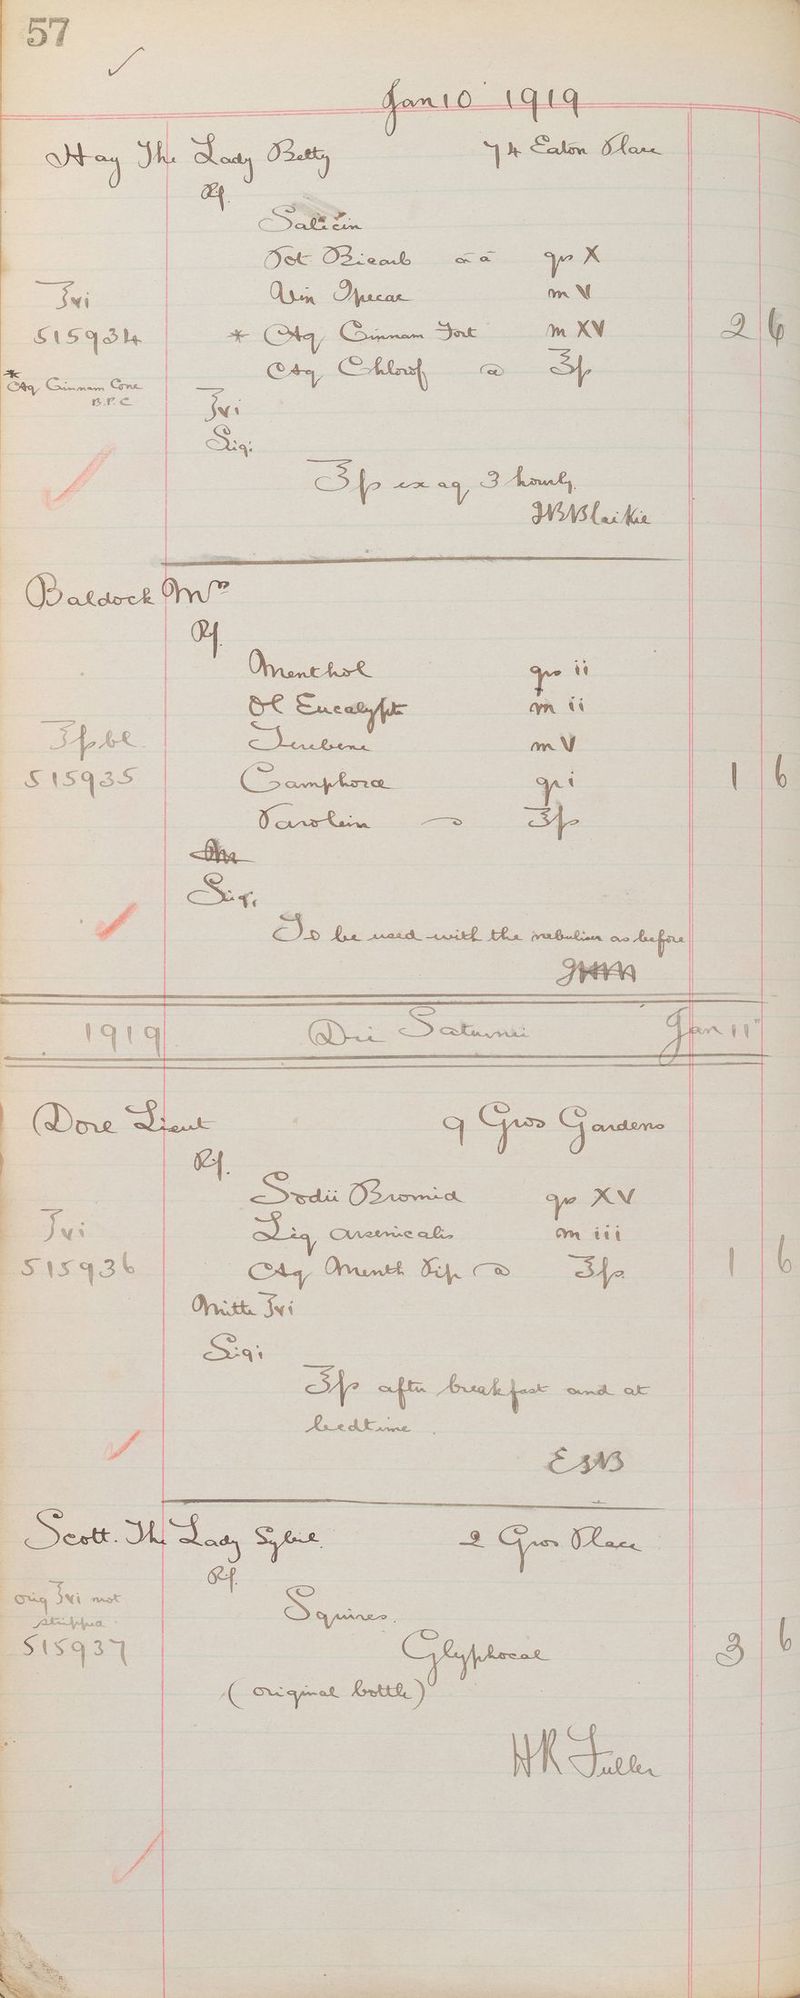 57
Jan 10 1919
Hay The Lady Betty 74 Eaton Place
Rx.
Salicin
Pot Bicarb āā grs X
Vin Ipecac m V
℥vi
515934 * Aq Cinnam Fort m XV 2 6
Aq Chlorof a ℥ß
* Aq Cinnam Conc
B.P.C
℥vi
Sig:
℥ß ex aq 3 hourly.
JBBlaikie
Baldock Mrs
Rx.
Menthol grs ii
Ol Eucalypti m ii
℥ß bl. Terebene m V
515935 Camphorae gr i 1 6
Parolein ℥ß
Sig.
To be used with the nebuliser as before
1919 Die Saturnii Jan 11"
Dore Lieut 9 Gros Gardens
Rx.
Sodii Bromid grs XV
℥vi Liq Arsenicalis m iii
515936 Aq Menth Pip a ℥ß 1 6
Mitte ℥vi
Sig:
℥ß after breakfast and at
bedtime.
Scott. The Lady Sybil. 2 Gros Place
Rx.
orig ℥vi not
Squires.
515937 Glyphocal 3 6
(original bottle)
HR Fuller